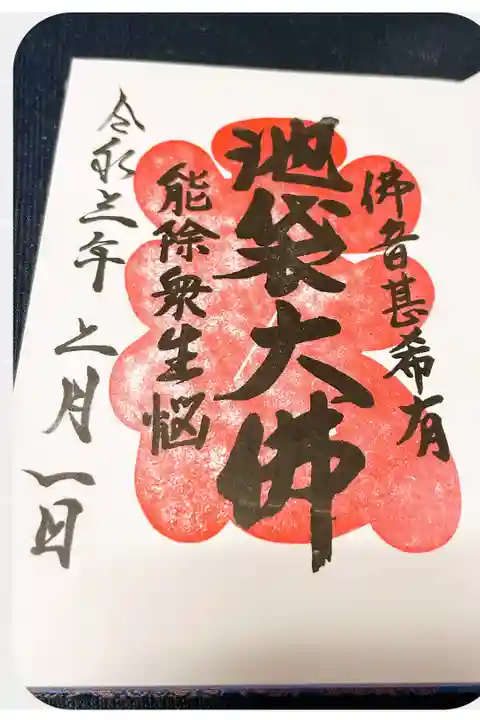 佛音甚希有
池袋大佛
能除衆生悩
令和七年 七月一日